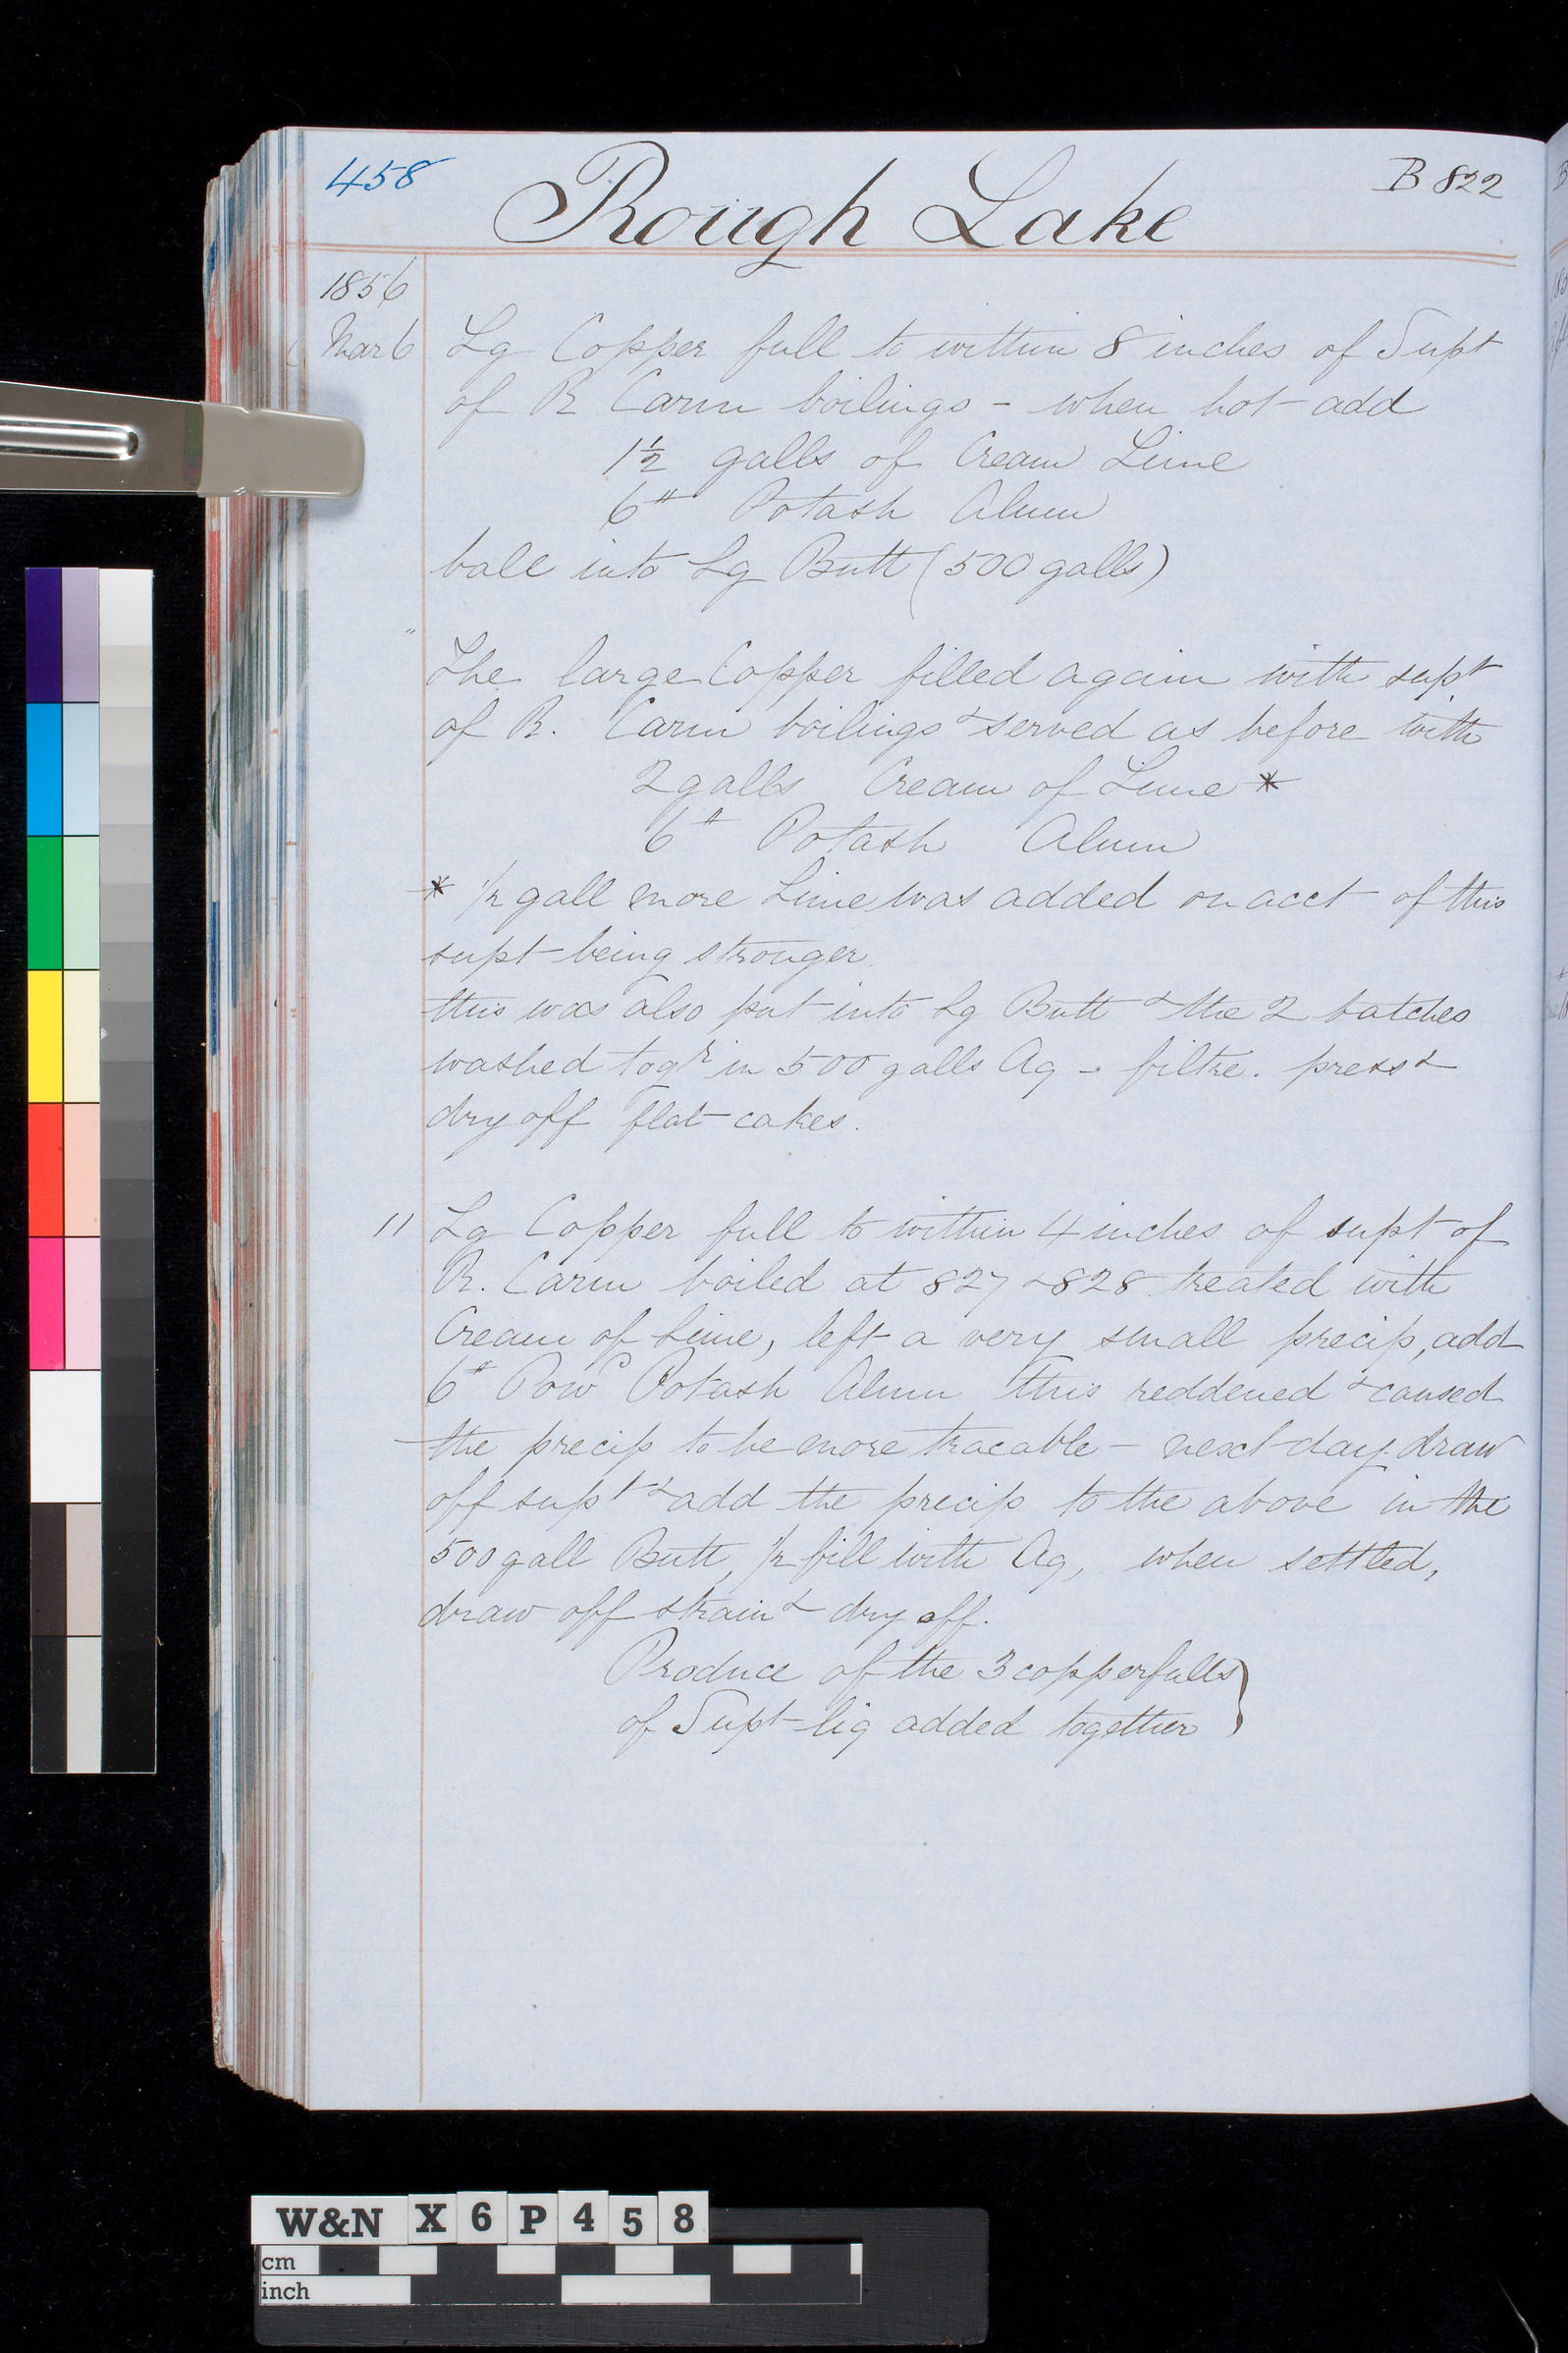 458
B 822
Rough Lake
1856
Mar 6 Lg Copper full to within 8 inches of Supt
of R Carm boilings - when hot add
1½ galls of Cream Lime
6# Potash Alum
bale into Lg Butt (500 galls)
" The large Copper filled again with supt
of R. Carm boilings & served as before with
2 galls Cream of Lime *
6# Potash Alum
* ½ gall more Lime was added on acct of this
supt being stronger.
this was also put into Lg Butt & the 2 batches
washed togr in 500 galls Aq - filtre. press &
dry off flat cakes.
11 Lg Copper full to within 4 inches of supt of
R. Carm boiled at 827 & 828 treated with
Cream of Lime, left a very small precip, add
6# Powd Potash Alum this reddened & caused
the precip to be more tracable - next day draw
off supt & add the precip to the above in the
500 gall Butt, ½ fill with Aq, when settled,
draw off strain & dry off.
Produce of the 3 copperfulls }
of Supt liq added together
W&N X 6 P 4 5 8
cm
inch